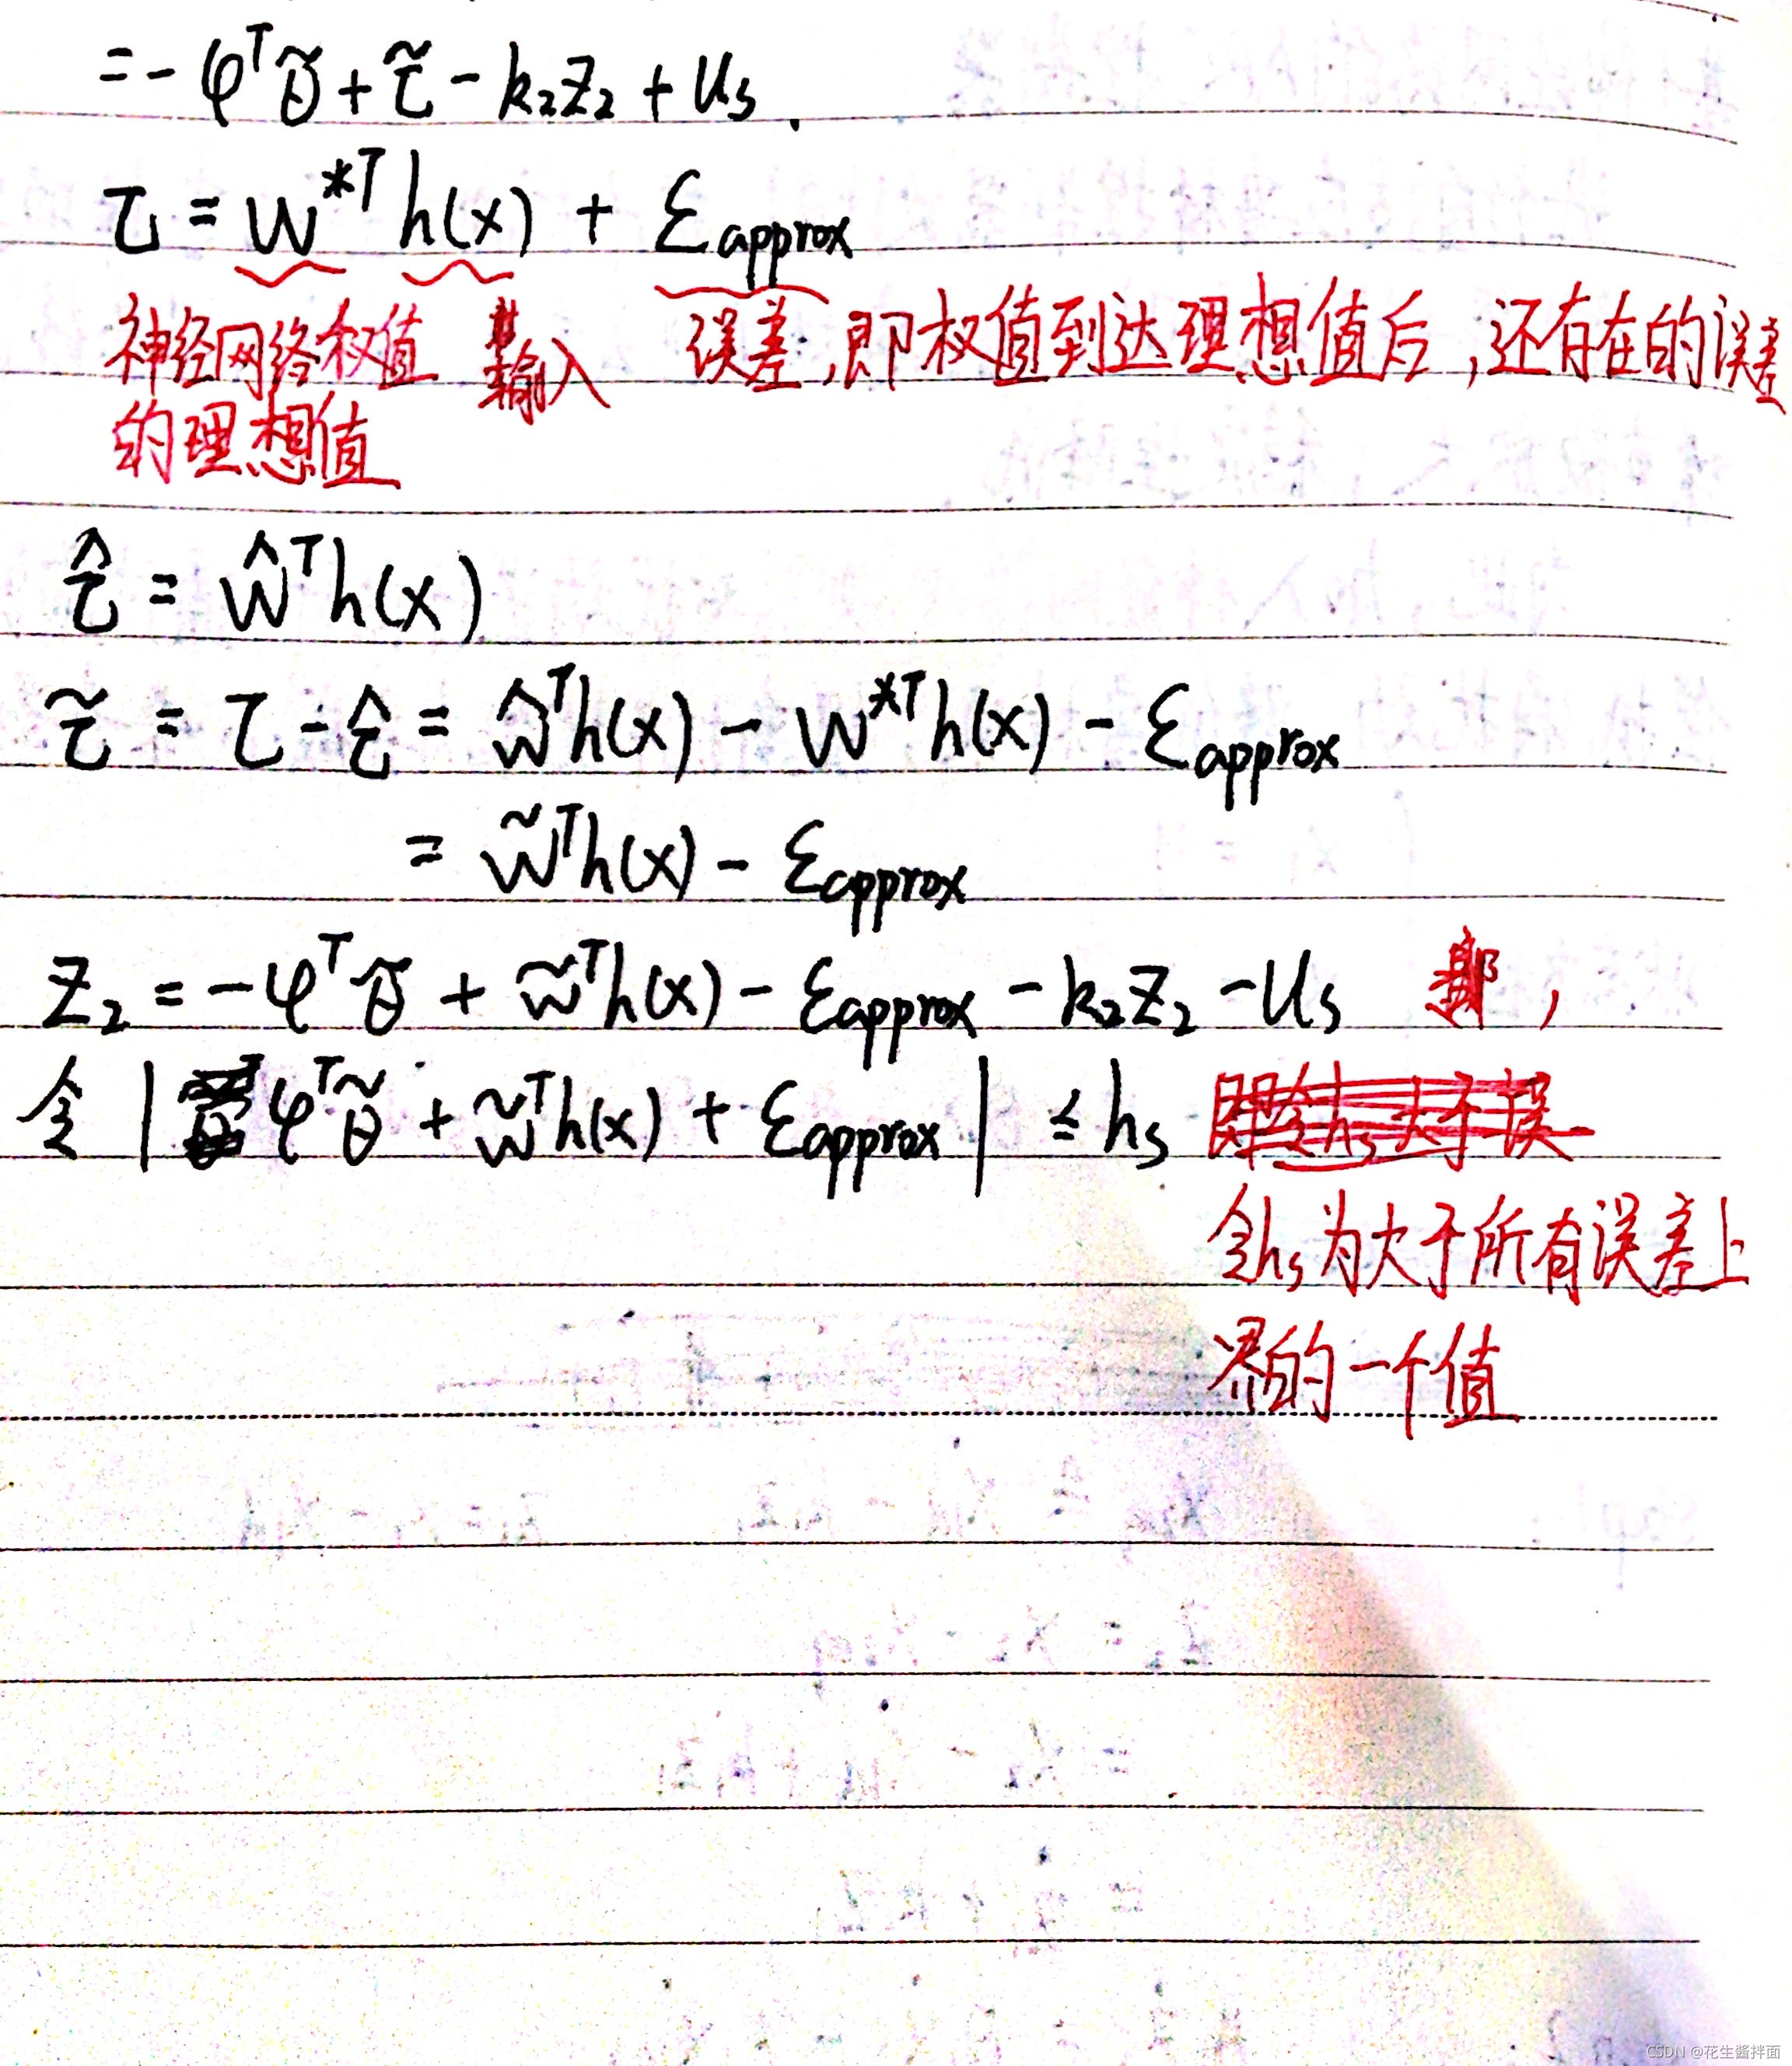 = - φᵀθ̃ + τ̃ - k₂z₂ + uₛ.
τ = W*ᵀ h(x) + ε_approx
神经网络权值 输入 误差,即权值到达理想值后,还有存在的误差
的理想值
τ̂ = Ŵᵀh(x)
τ̃ = τ - τ̂ = Ŵᵀh(x) - W*ᵀh(x) - ε_approx
= W̃ᵀh(x) - ε_approx
z₂ = -φᵀθ̃ + W̃ᵀh(x) - ε_approx - k₂z₂ - uₛ ,
令 | φᵀθ̃ + W̃ᵀh(x) + ε_approx | ≤ hₛ
令hₛ为大于所有误差上
界的一个值
CSDN @花生酱拌面